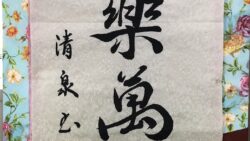 樂萬
清泉书